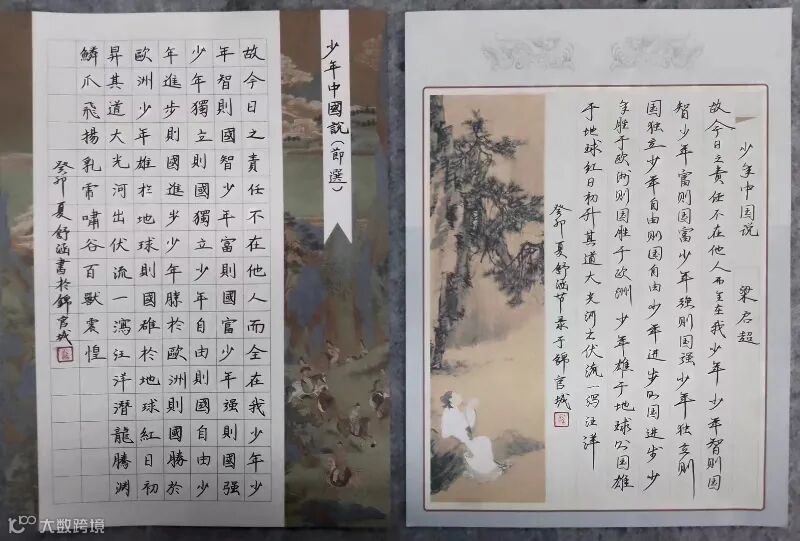 少年中國說(節選)
故今日之責任不在他人而全在我少年少
年智則國智少年富則國富少年強則國強
少年獨立則國獨立少年自由則國自由少
年進步則國進步少年勝於歐洲則國勝於
歐洲少年雄於地球則國雄於地球紅日初
昇其道大光河出伏流一瀉汪洋潛龍騰淵
鱗爪飛揚乳虎嘯谷百獸震惶
癸卯夏舒涵書於錦官城
少年中国说 梁启超
故今日之责任不在他人而全在我少年 少年智则国
智少年富则国富少年强则国强少年独立则
国独立少年自由则国自由少年进步则国进步少
年胜于欧洲则国胜于欧洲 少年雄于地球则国雄
于地球红日初升其道大光河出伏流一泻汪洋
癸卯夏舒涵节录于锦官城
大数跨境